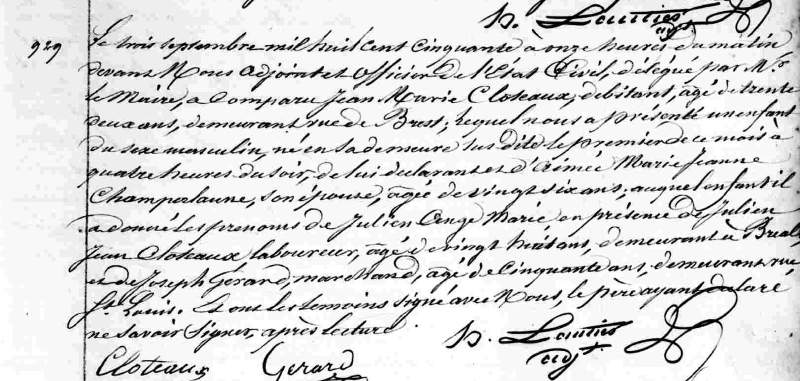 h. Lauties
adj.t
929 Le trois septembre mil huit cent cinquante à onze heures du matin
devant Nous adjoint et officier de l'Etat Civil, délégué par Mr.
le Maire, a comparu Jean Marie Cloteaux, débitant, âgé de trente
deux ans, demeurant rue de Brest; lequel nous a présenté un enfant
du sexe masculin, né en sa demeure sus dite le premier de ce mois à
quatre heures du soir, de lui déclarant et d'Aimée Marie Jeanne
Champalaune, son épouse, âgée de vingt six ans; auquel enfant il
a donné les prénoms de Julien Ange Marie en présence de Julien
Jean Cloteaux laboureur, âgé de vingt huit ans, demeurant à Bréal,
et de Joseph Gérard, marchand, âgé de Cinquante ans, demeurant rue
St. Louis. Et ont les témoins signé avec Nous, le père ayant déclaré
ne savoir signer, après lecture
h. Lauties
adj.t
Cloteaux Gérard